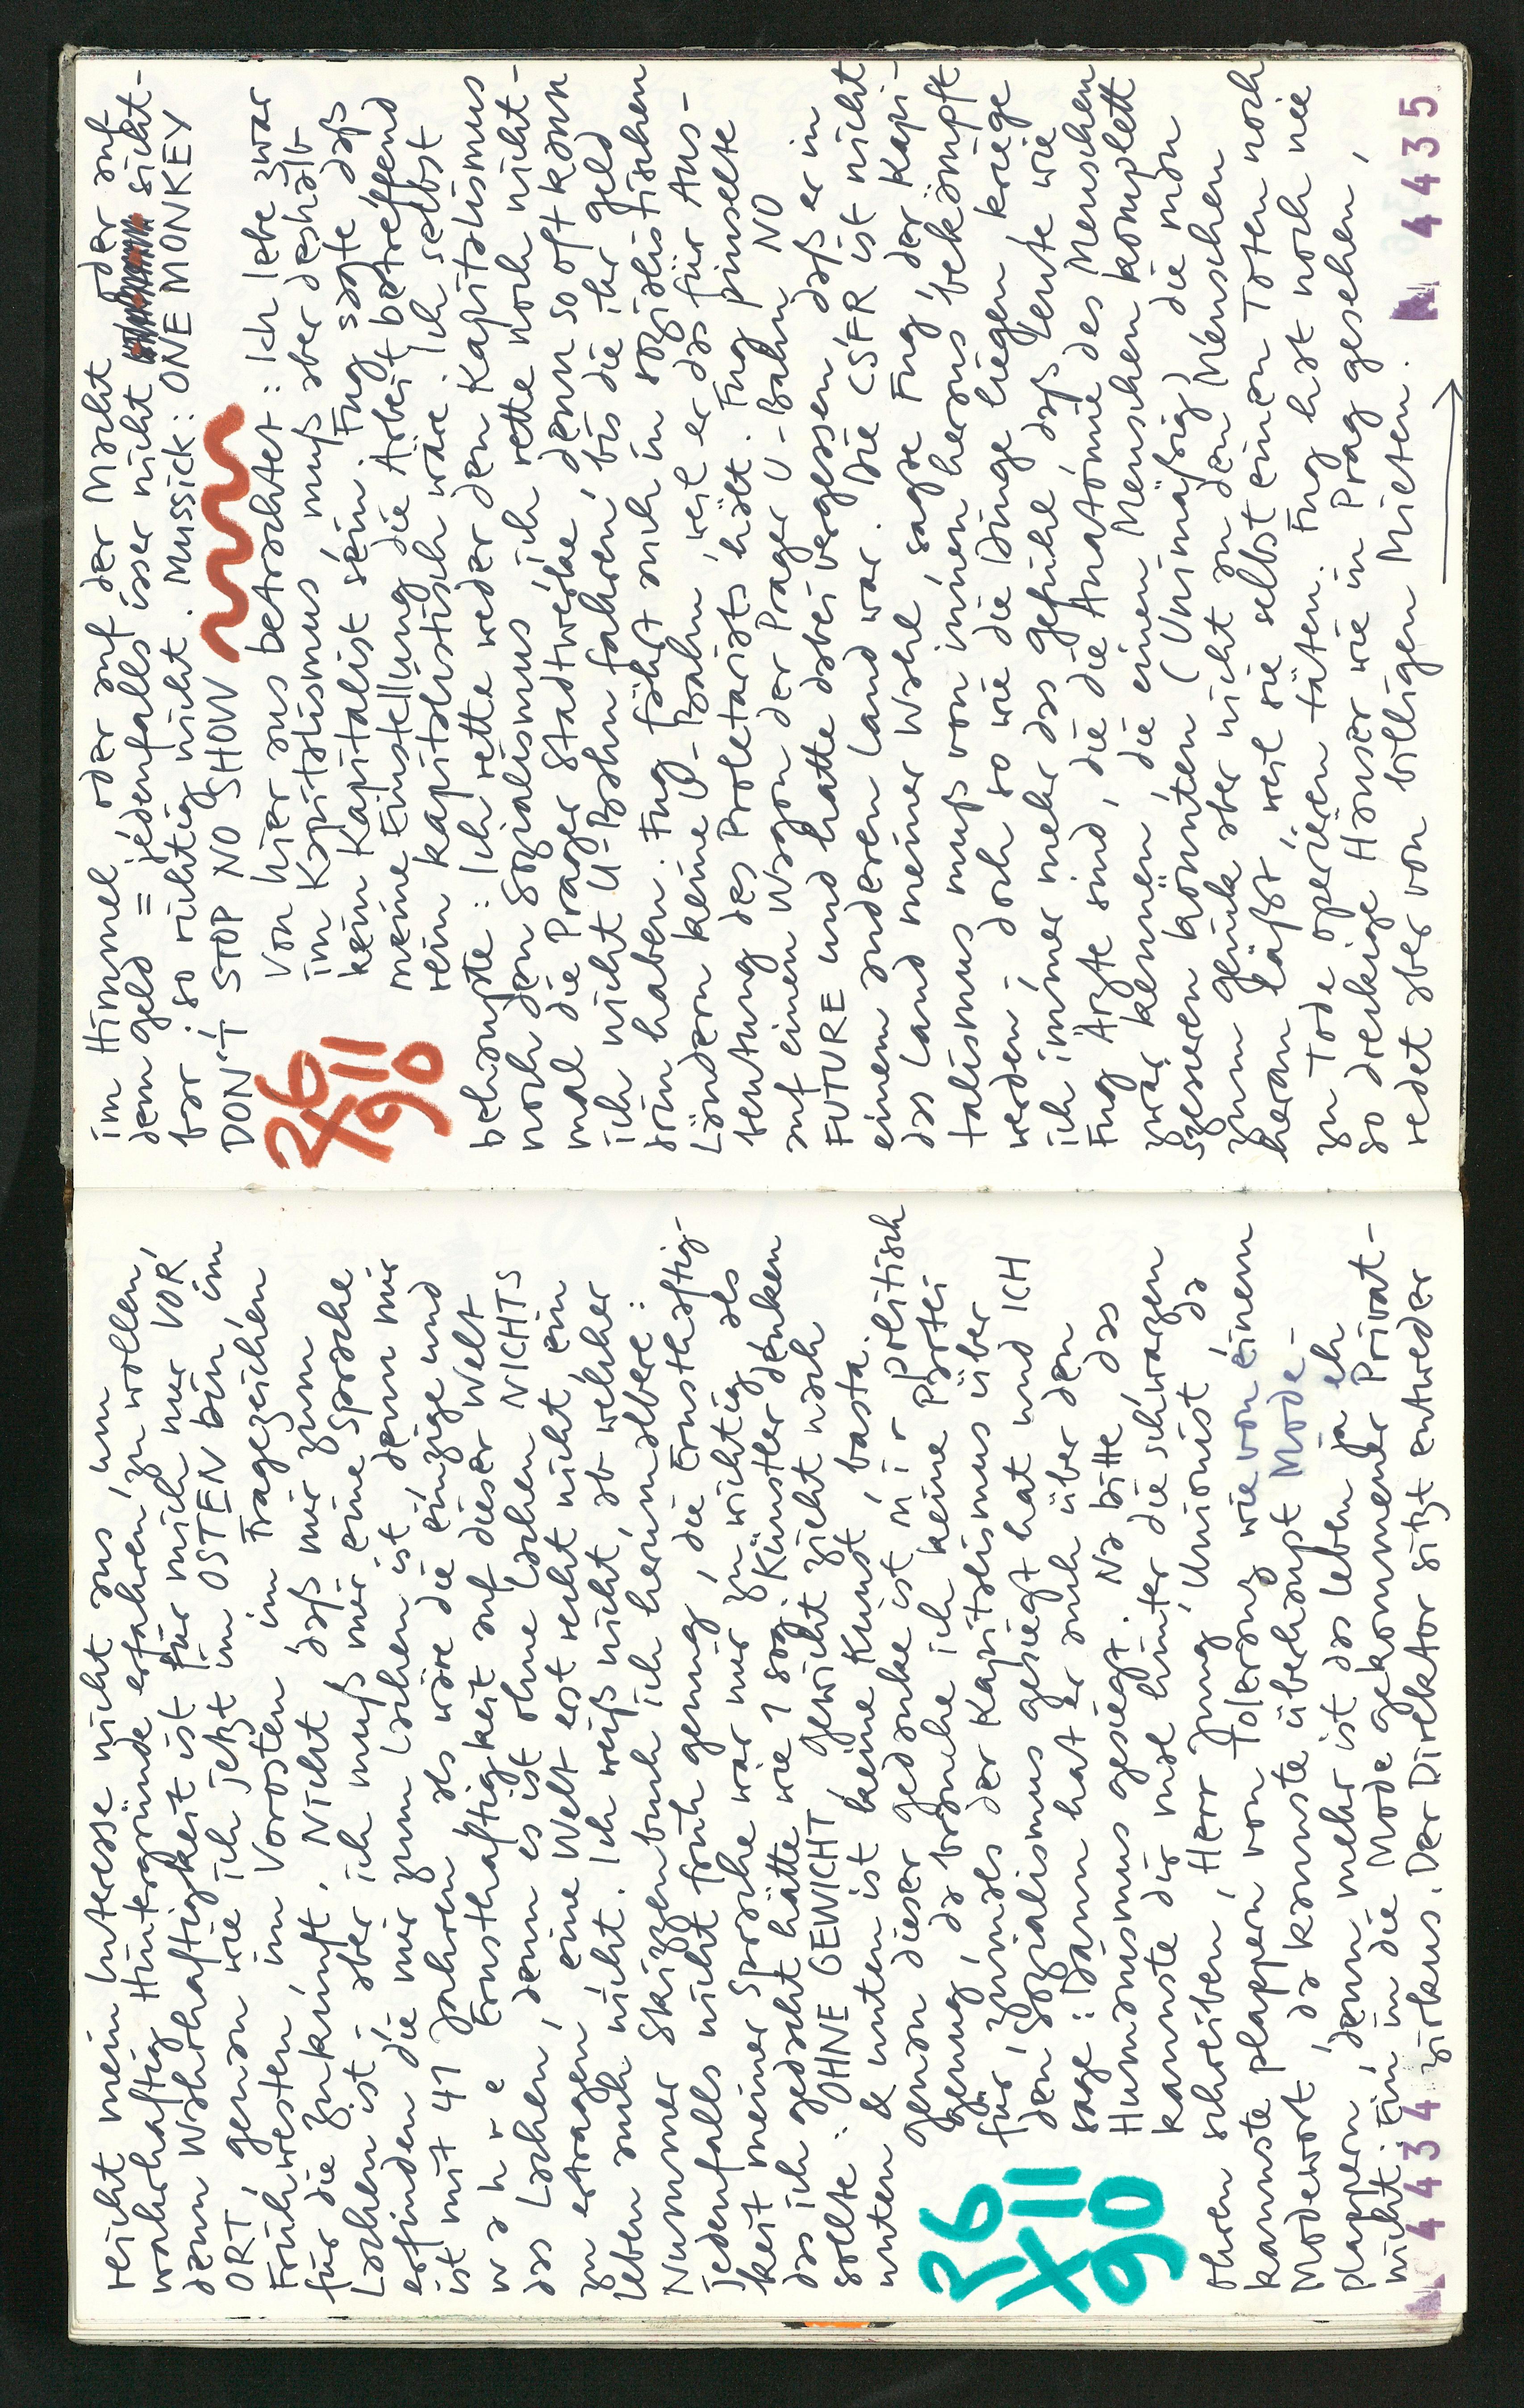 reicht mein Interesse nicht aus, um
wahrhaftig Hintergründe erfahren zu wollen,
denn Wahrhaftigkeit ist für mich nur VOR
ORT, genau wie ich jetzt im OSTEN bin, im
Frühwesten, im Vorosten, im Fragezeichen
für die Zukunft. Nicht daß mir zum
Lachen ist - aber ich muß mir eine Sprache
erfinden, die mir zum Lachen ist, denn mir
ist mit 41 Jahren als wäre die einzige und
w a h r e Ernsthaftigkeit auf dieser Welt
das Lachen, denn es ist ohne Lachen NICHTS
zu ertragen, eine Welt erst recht nicht, ein
Leben auch nicht. Ich weiß nicht, ob welcher
Nummer Skizzenbuch ich herumalbere:
jedenfalls nicht früh genug, die Ernsthaftig-
keit meiner Sprache war mir zu wichtig als
das ich gedacht hätte wie 1 sog. Künstler denken
sollte: OHNE GEWICHT, Gewicht zieht nach
unten & unten ist keine Kunst, basta.
26
XII
90
Genau dieser Gedanke ist mir politisch
genug, da brauche ich keine Partei
für, zumal der Kapitalismus über
den Sozialismus gesiegt hat und ICH
sage: Dann hat er auch über den
Humanismus gesiegt. Na bitte das
kannste dir mal hinter die schwarzen
Ohren schreiben, Herr Jung, Unionist, da
kannste plappern von Toleranz wie von einem
Modewort, da kannste überhaupt Mode-
plappern, denn mehr ist das Leben ja eh
nicht. Ein in die Mode gekommener Privat-
zirkus. Der Direktor sitzt entweder
4434
im Himmel oder auf der Macht oder auf
dem Geld = jedenfalls isser nicht sicht-
bar, so richtig nicht. Mussick: ONE MONKEY
DON'T STOP NO SHOW
26
XII
90
Von hier aus betrachtet: Ich lebe zwar
im Kapitalismus, muß aber deshalb
kein Kapitalist sein. Fug sagte daß
meine Einstellung die Arbeit betreffend
rein kapitalistisch wäre. Ich selbst
behaupte: Ich rette weder den Kapitalismus
noch den Sozialismus, ich rette noch nicht-
mal die Prager Stadtwerke, denn so oft kann
ich nicht U-Bahn fahren, bis die ihr Geld
drin haben. Fug fährt auch in sozialistischen
Ländern keine U-Bahn, weil er das für Aus-
beutung des Proletariats hält. Fug pinselte
auf einen Wagon der Prager U-Bahn NO
FUTURE und hatte dabei vergessen, daß er in
einem anderen Land war. Die CSFR ist nicht
das Land meiner Wahl, sagte Fug, der Kapi-
talismus muß von innen heraus bekämpft
werden - doch so wie die Dinge liegen kriege
ich immer mehr das Gefühl, daß Leute wie
Fug Ärzte sind, die die Anatomie des Menschen
zwar kennen, die einen Menschen komplett
sezieren könnten (Unimäßig), die man
zum Glück aber nicht an den Menschen
heran läßt, weil sie selbst einen Toten noch
zu Tode operieren täten. Fug hat noch nie
so dreckige Häuser wie in Prag gesehen,
redet aber von billigen Mieten.
4435